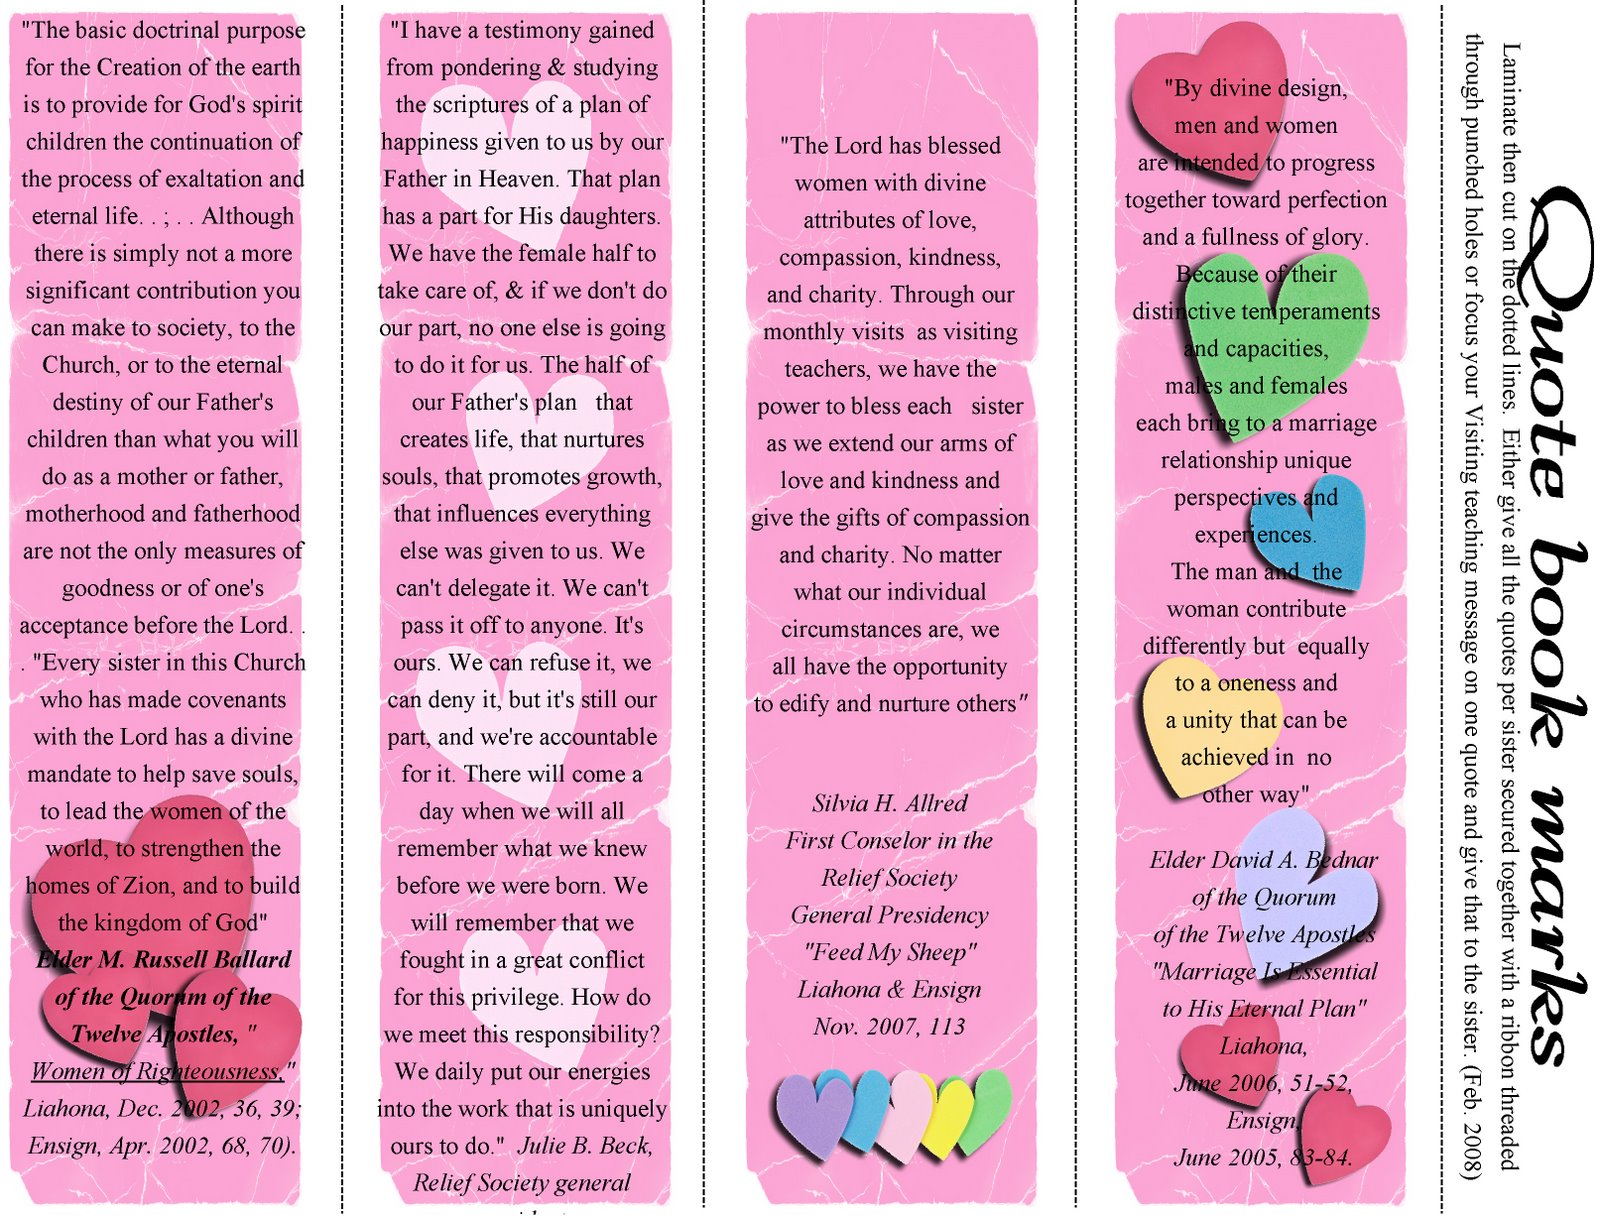 "The basic doctrinal purpose
for the Creation of the earth
is to provide for God's spirit
children the continuation of
the process of exaltation and
eternal life. . ; . . Although
there is simply not a more
significant contribution you
can make to society, to the
Church, or to the eternal
destiny of our Father's
children than what you will
do as a mother or father,
motherhood and fatherhood
are not the only measures of
goodness or of one's
acceptance before the Lord. .
. "Every sister in this Church
who has made covenants
with the Lord has a divine
mandate to help save souls,
to lead the women of the
world, to strengthen the
homes of Zion, and to build
the kingdom of God"
Elder M. Russell Ballard
of the Quorum of the
Twelve Apostles, "
Women of Righteousness,"
Liahona, Dec. 2002, 36, 39;
Ensign, Apr. 2002, 68, 70).
"I have a testimony gained
from pondering & studying
the scriptures of a plan of
happiness given to us by our
Father in Heaven. That plan
has a part for His daughters.
We have the female half to
take care of, & if we don't do
our part, no one else is going
to do it for us. The half of
our Father's plan that
creates life, that nurtures
souls, that promotes growth,
that influences everything
else was given to us. We
can't delegate it. We can't
pass it off to anyone. It's
ours. We can refuse it, we
can deny it, but it's still our
part, and we're accountable
for it. There will come a
day when we will all
remember what we knew
before we were born. We
will remember that we
fought in a great conflict
for this privilege. How do
we meet this responsibility?
We daily put our energies
into the work that is uniquely
ours to do." Julie B. Beck,
Relief Society general
"The Lord has blessed
women with divine
attributes of love,
compassion, kindness,
and charity. Through our
monthly visits as visiting
teachers, we have the
power to bless each sister
as we extend our arms of
love and kindness and
give the gifts of compassion
and charity. No matter
what our individual
circumstances are, we
all have the opportunity
to edify and nurture others"
Silvia H. Allred
First Conselor in the
Relief Society
General Presidency
"Feed My Sheep"
Liahona & Ensign
Nov. 2007, 113
"By divine design,
men and women
are intended to progress
together toward perfection
and a fullness of glory.
Because of their
distinctive temperaments
and capacities,
males and females
each bring to a marriage
relationship unique
perspectives and
experiences.
The man and the
woman contribute
differently but equally
to a oneness and
a unity that can be
achieved in no
other way"
Elder David A. Bednar
of the Quorum
of the Twelve Apostles
"Marriage Is Essential
to His Eternal Plan"
Liahona,
June 2006, 51-52,
Ensign,
June 2005, 83-84.
Quote book marks
Laminate then cut on the dotted lines. Either give all the quotes per sister secured together with a ribbon threaded
through punched holes or focus your Visiting teaching message on one quote and give that to the sister. (Feb. 2008)